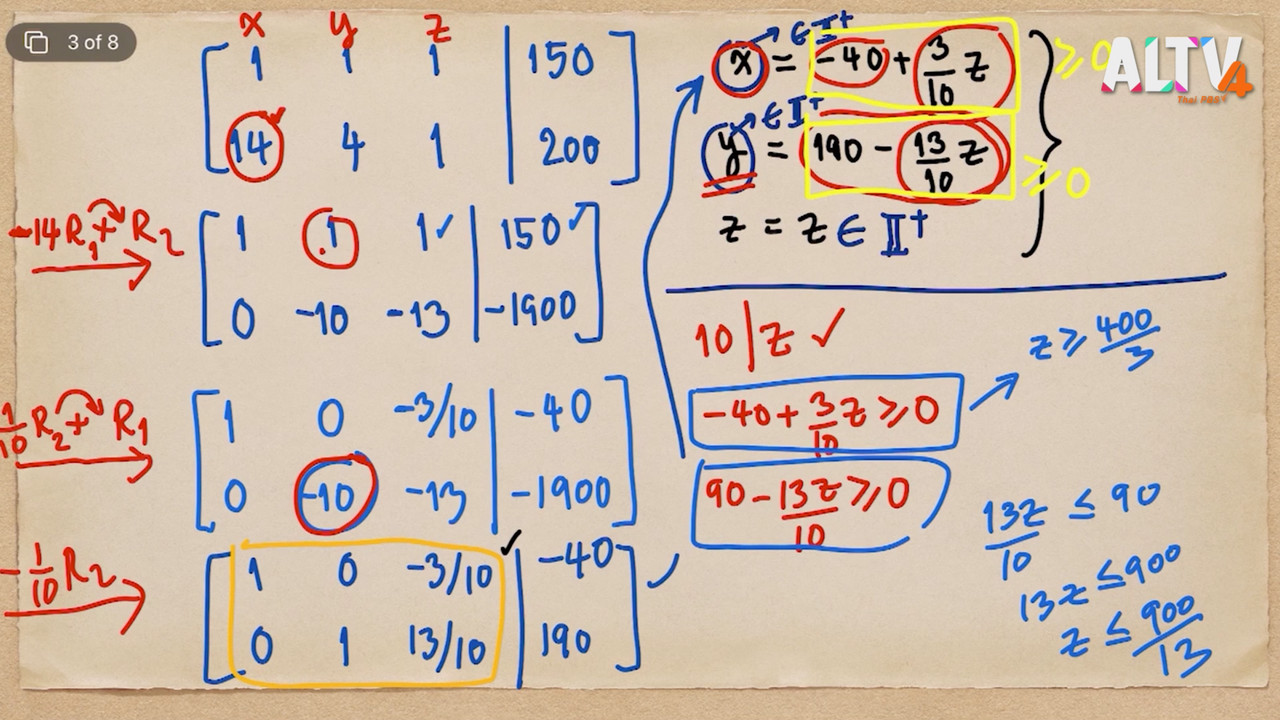 3 of 8
ALTV4
Thai PBS
x y z
1 1 1 | 150
14 4 1 | 200
-14R₁ + R₂
1 1 1 | 150
0 -10 -13 | -1900
1/10 R₂ + R₁
1 0 -3/10 | -40
0 -10 -13 | -1900
-1/10 R₂
1 0 -3/10 | -40
0 1 13/10 | 190
x = -40 + 3/10 z ≥ 0
∈ I⁺
y = 190 - 13/10 z ≥ 0
∈ I⁺
z = z ∈ I⁺
10 | z ✓
-40 + 3/10 z ≥ 0
z ≥ 400/3
90 - 13z/10 ≥ 0
13z/10 ≤ 90
13z ≤ 900
z ≤ 900/13